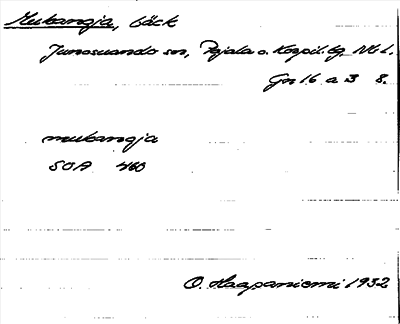 Mukanoja, bäck
Junosuando sn, Pajala o. Korpil. tg. Nb l.
Gn 16 a 3 8.
mukanoja
SOA 460
O. Haapaniemi 1932